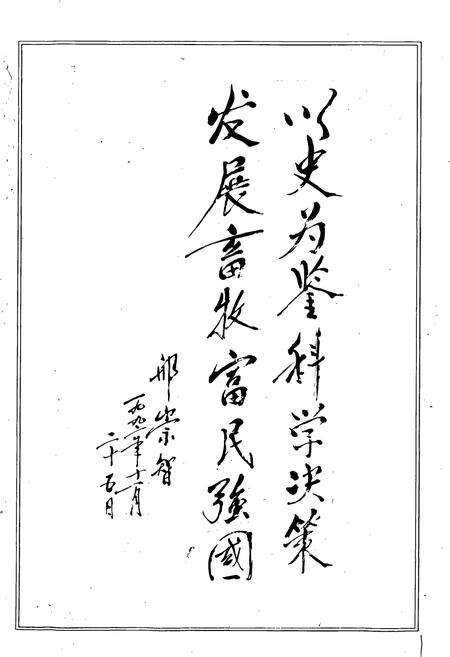 以史为鉴科学决策
发展畜牧富民强国
邢崇智
一九九一年十一月
二十五日